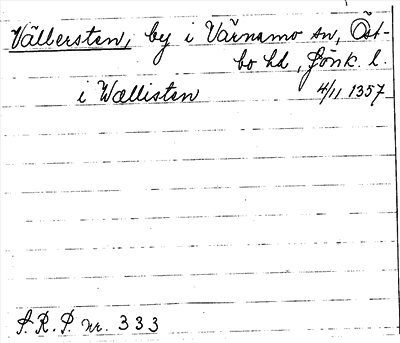 Vällersten, by i Värnamo sn, Öst-
bo hd, Jönk. l.
i Wællisten 4/11 1357
S.R.P. nr. 333